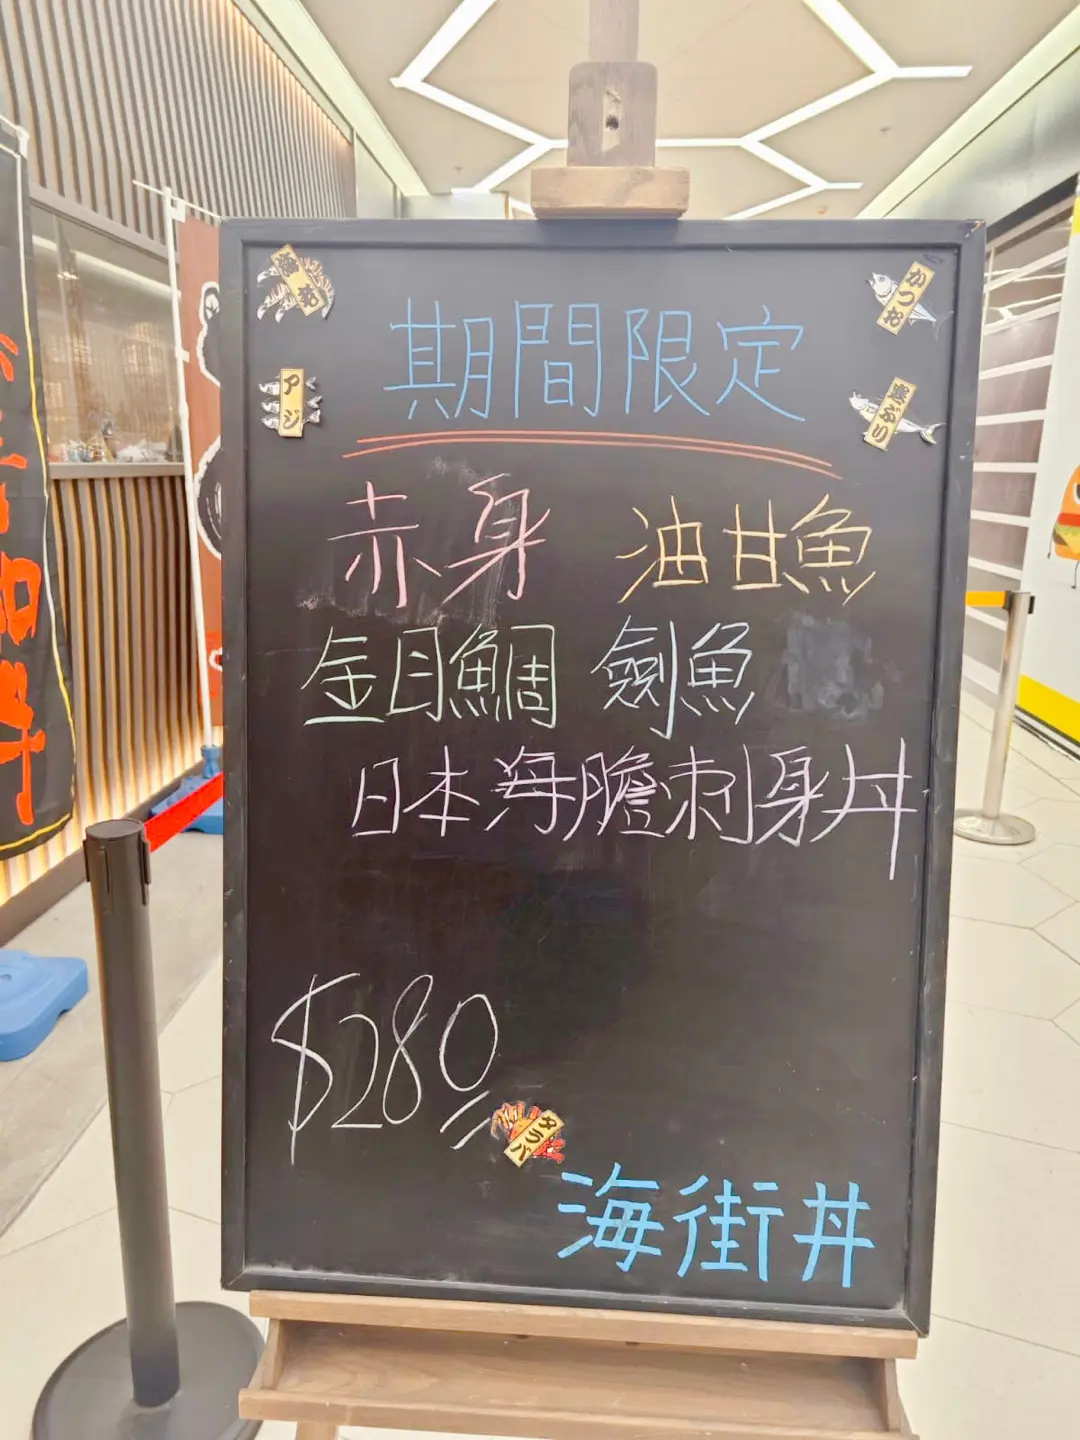 期間限定
赤身 油甘魚
金目鯛 劍魚
日本海膽刺身丼
$280
海街丼
かつお
アジ
寒ぶり
タラバ